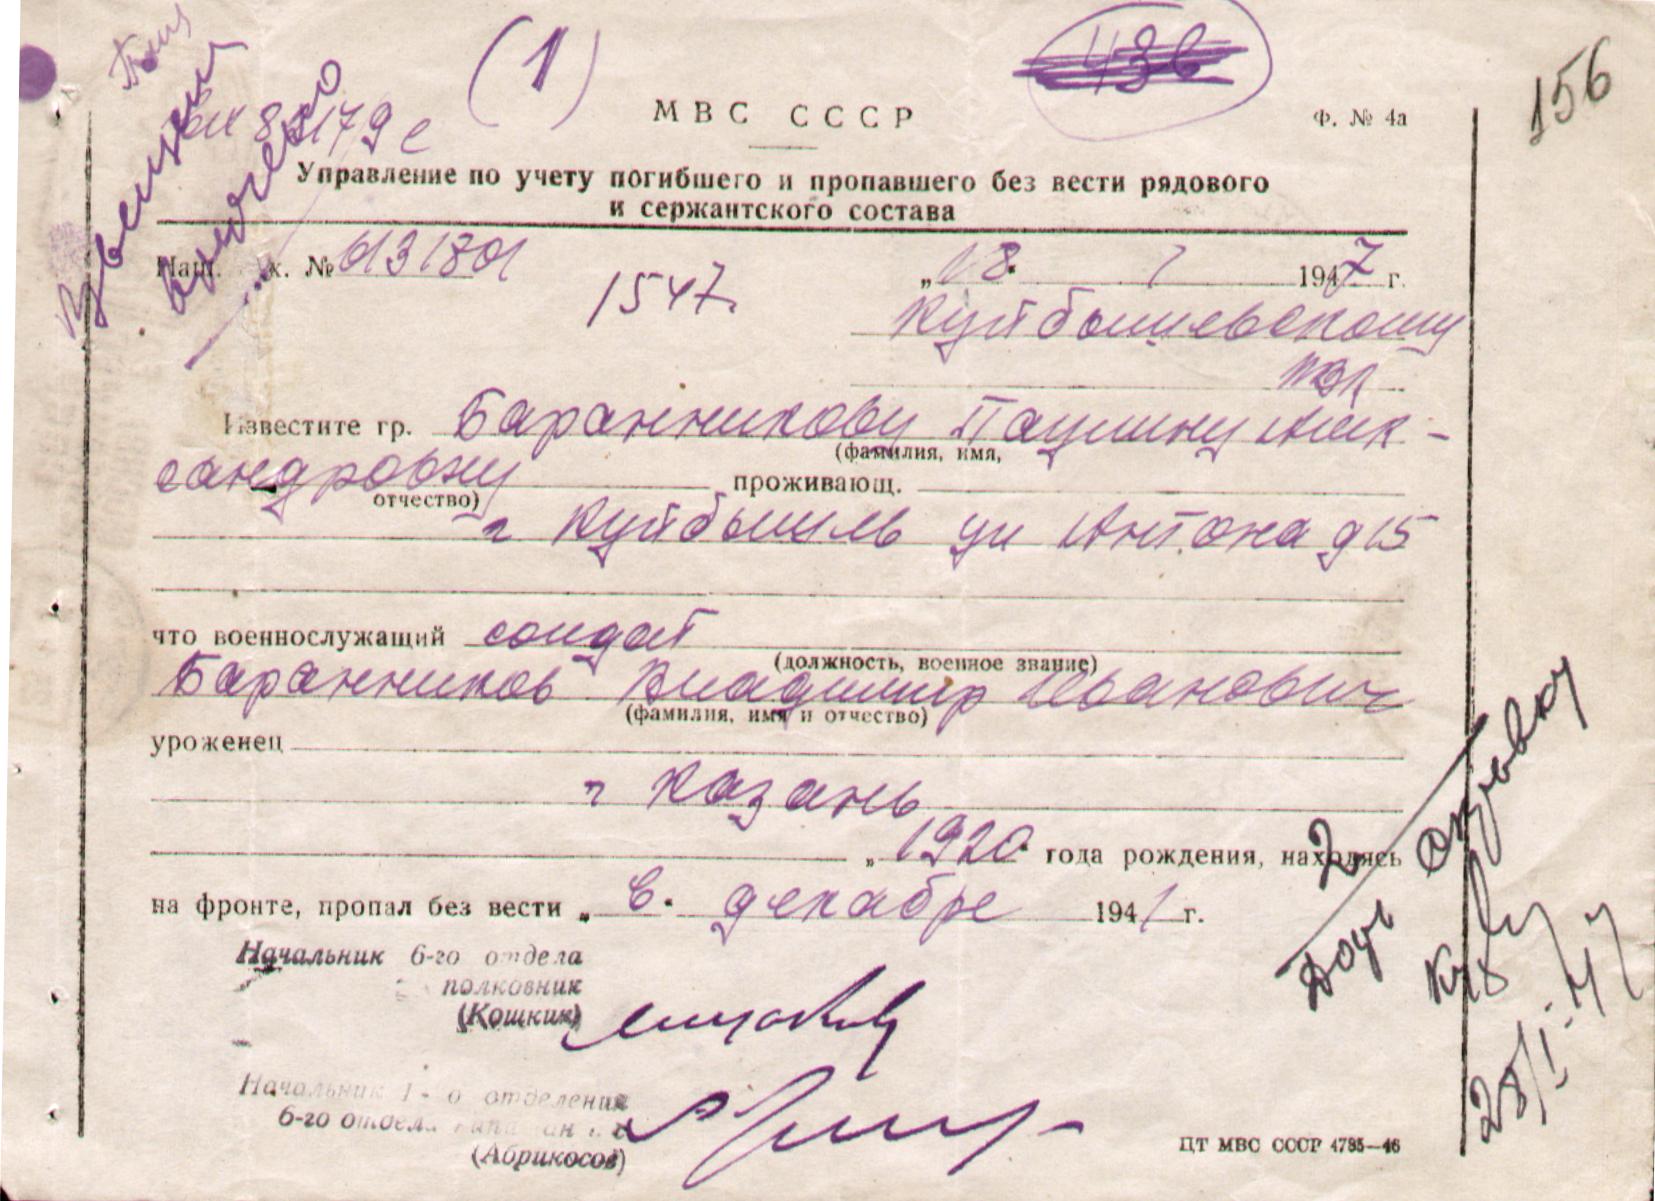 (1)
436
156
МВС СССР
Ф. № 4а
Управление по учету погибшего и пропавшего без вести рядового
и сержантского состава
Извещен
вх 8179с
вручено
№ 613180
„18." 1 1947 г.
1547.
Куйбышевскому
Известите гр. Баранникову Паулину Алек-
(фамилия, имя,
сандровну проживающ.
отчество)
г Куйбышев ул Антона д 15
что военнослужащий солдат
(должность, военное звание)
Баранников Владимир Иванович
(фамилия, имя и отчество)
уроженец
г Казань
„1920. года рождения, находясь
на фронте, пропал без вести „в. декабре 1941 г.
Начальник 6-го отдела
полковник
(Кошкин)
Начальник 1-го отделения
6-го отдела
(Абрикосов)
ЦТ МВС СССР 4785—46
2
28/I-47